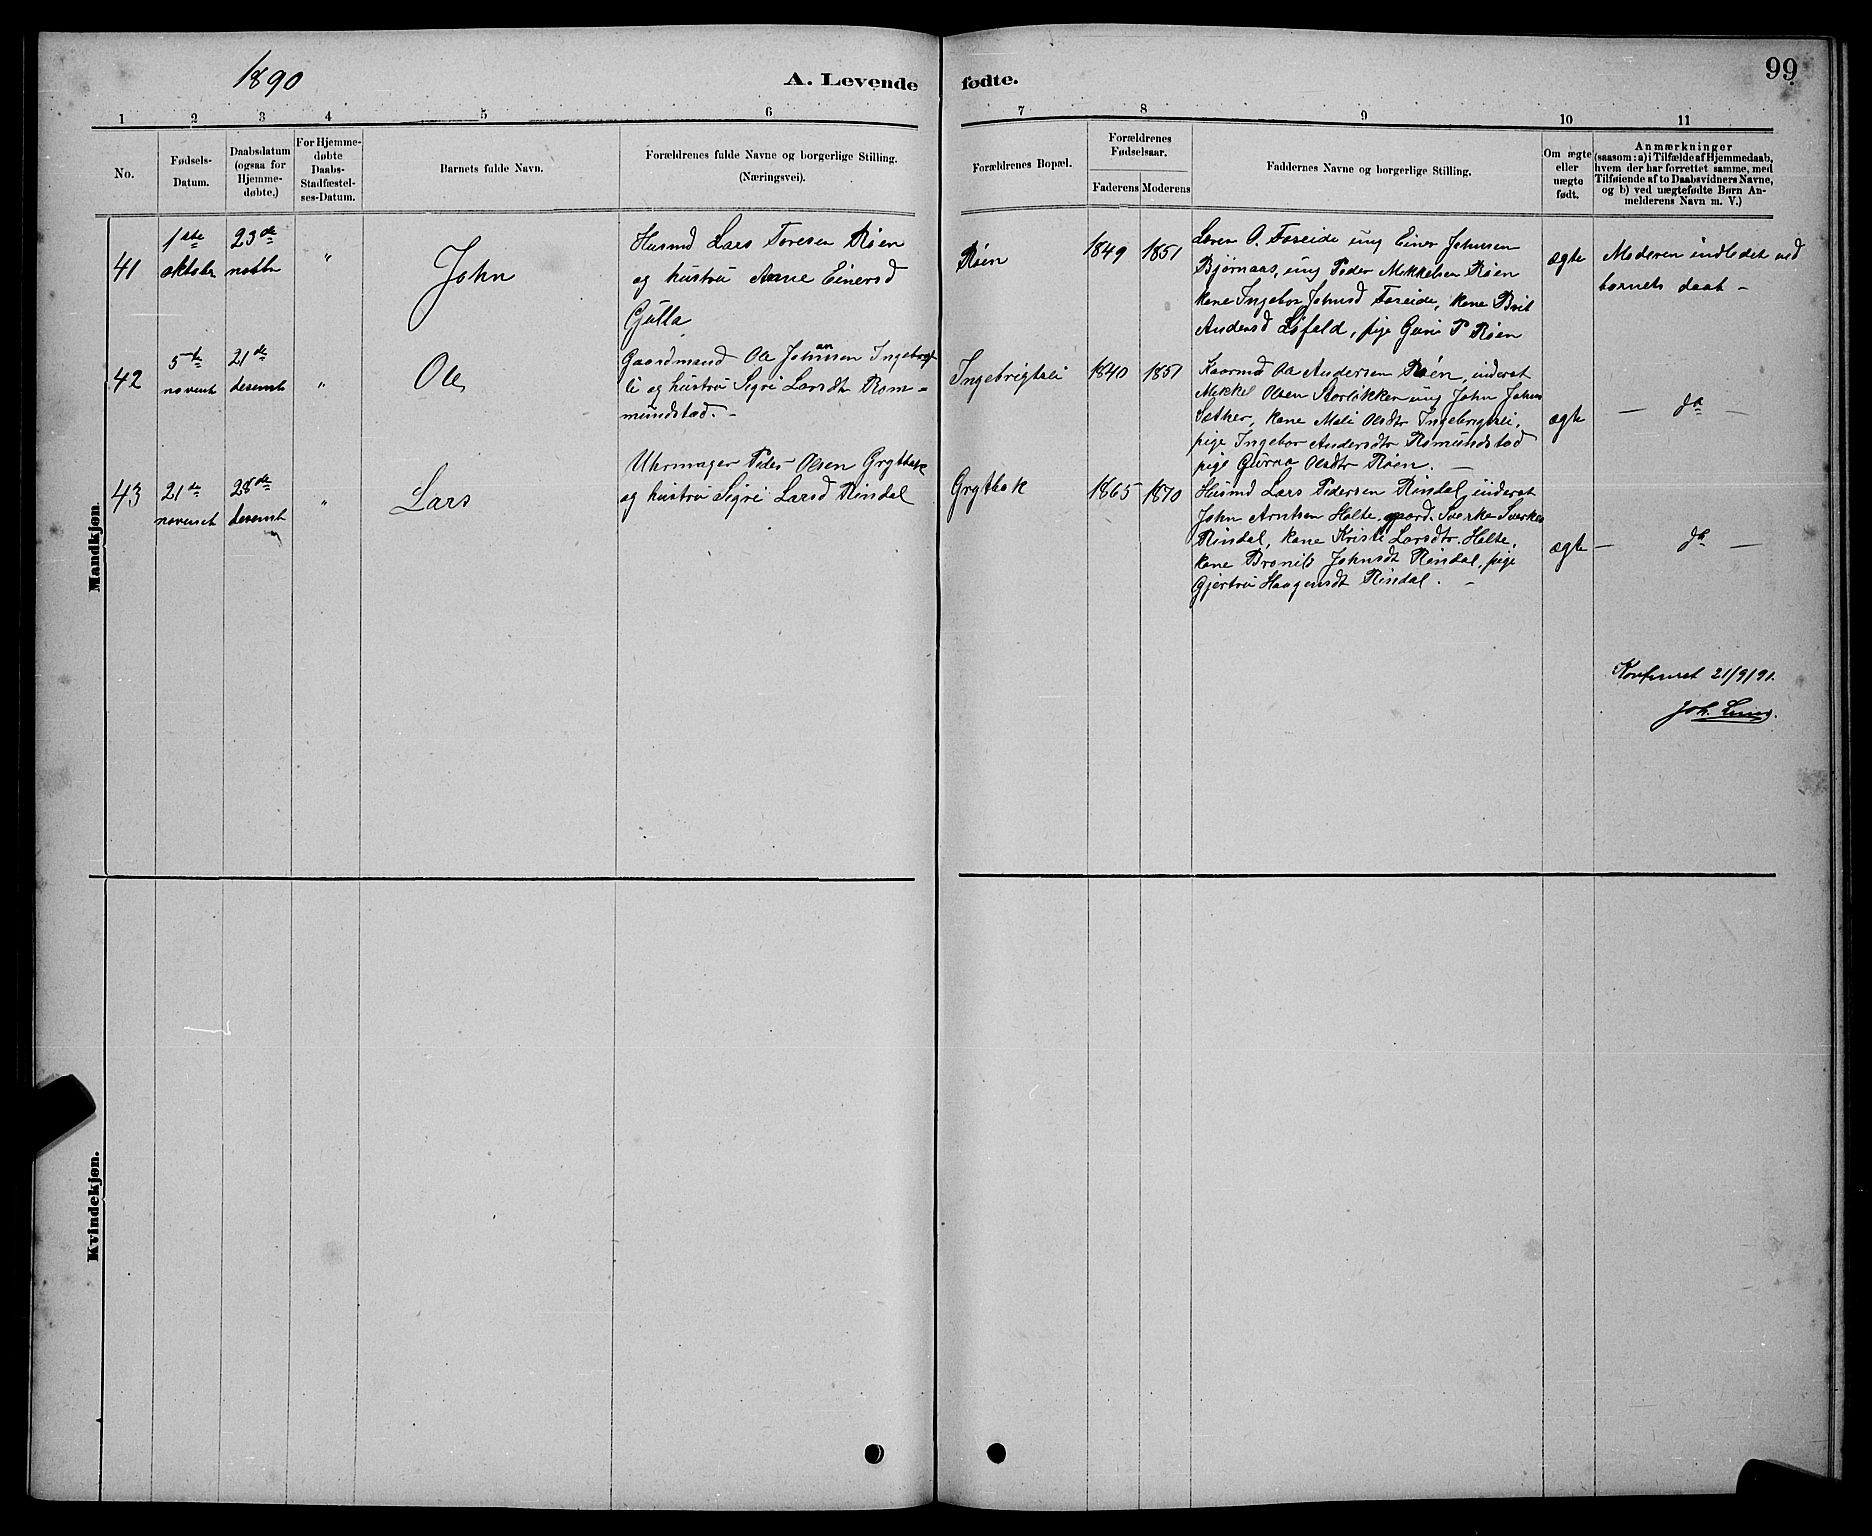 1890
A. Levende fødte.
99
1 2 3 4 5 6 7 8 9 10 11
No.
Fødsels-
Datum.
Daabsdatum
(ogsaa for
Hjemme-
døbte.)
For Hjemme-
døbte
Daabs-
Stadfæstel-
ses-Datum.
Barnets fulde Navn.
Forældrenes fulde Navne og borgerlige Stilling.
(Næringsvei).
Forældrenes Bopæl.
Forældrenes
Fødselsaar.
Faderens Moderens
Faddernes Navne og borgerlige Stilling.
Om ægte
eller
uægte
født.
Anmærkninger
(saasom: a) i Tilfælde af Hjemmedaab,
hvem der har forrettet samme, med
Tilføiende af to Daabsvidners Navne,
og b) ved uægtefødte Børn An-
melderens Navn m. V.)
Mandkjøn.
41
1ste
oktober
23de
novbr
"
John
Husmd Lars Toresen Røen
og hustru Anne Einersd
Gulla
Røen
1849
1851
Loren O. Foseide ung Einer Johnsen
Bjørnaas, ung Peder Mikkelsen Røen
kone Ingebor Johnsd Foseide, kone Brit
Andersd Løfald, pige Guri P Røen
ægte
Moderen indledet ved
barnets daab -
42
5te
novemb
21de
desemb
"
Ole
Gaardmand Ole Johnsen Ingebrigt
li og hustru Sigri Larsdt Rom=
mundstad. -
Ingebrigtsli
1840
1851
Kaarmd Ole Andersen Røen, inderst
Mikkel Olsen Aarløkken ung John Johns
Sæther, kone Mali Olsdtr Ingebrigtsli,
pige Ingebor Andersdtr Romundstad
pige Gurua Olsdtr Røen. -
ægte
- do -
43
21de
novemb
28de
desemb
"
Lars
Uhrmager Peder Olsen Grytbak
og hustru Sigri Larsd Rindal
Grytbak
1865
1870
Husmd Lars Pedersen Rindal, inderst
John Arntsen Holte, gaard. Sverke Sverkes
Rindal, kone Kristi Larsdtr. Holte,
kone Bronild Johnsdt Rindal, pige
Gjertru Haagensdt Rindal. -
ægte
- do -
Konfereret 21/9/91.
Joh. Lund.
Kvindekjøn.